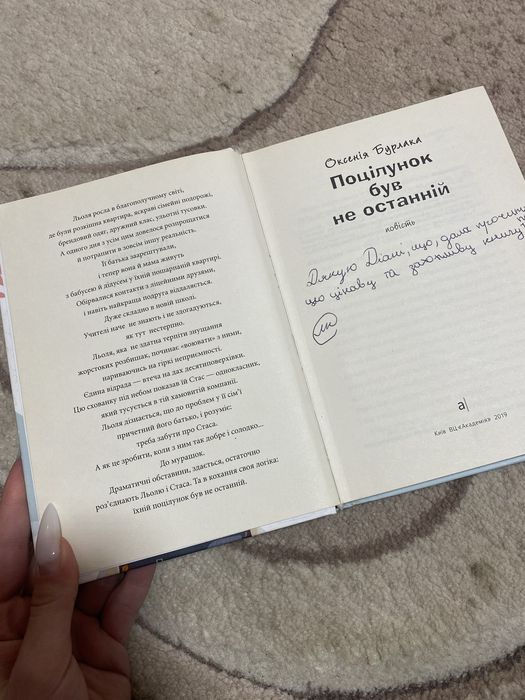 Льоля росла в благополучному світі,
де були розкішна квартира, яскраві сімейні подорожі,
брендовий одяг, дружний клас, улюбні тусовки.
А одного дня з усім цим довелося розпрощатися
й потрапити в зовсім іншу реальність.
Її батька заарештували,
і тепер вона й мама живуть
з бабусею й дідусем у їхній пошарпаній квартирі.
Обірвалися контакти з ліцейними друзями,
і навіть найкраща подруга віддаляється.
Дуже складно в новій школі.
Учителі наче не знають і не здогадуються,
як тут нестерпно.
Льоля, яка не здатна терпіти знущання
жорстоких розбишак, починає «воювати» з ними,
нариваючись на гіркі неприємності.
Єдина відрада — втеча на дах десятиповерхівки.
Цю схованку під небом показав їй Стас — однокласник,
який тусується в тій хамовитій компанії.
Льоля дізнається, що до проблем у її сім'ї
причетний його батько, і розуміє:
треба забути про Стаса.
А як це зробити, коли з ним так добре і солодко...
До мурашок.
Драматичні обставини, здається, остаточно
роз'єднають Льолю і Стаса. Та в кохання своя логіка:
їхній поцілунок був не останній.
Оксенія Бурлака
Поцілунок
був
не останній
повість
Дякую Діані, що дала прочита
що цікаву та захопливу книгу!
а|
Київ ВЦ «Академія» 2019